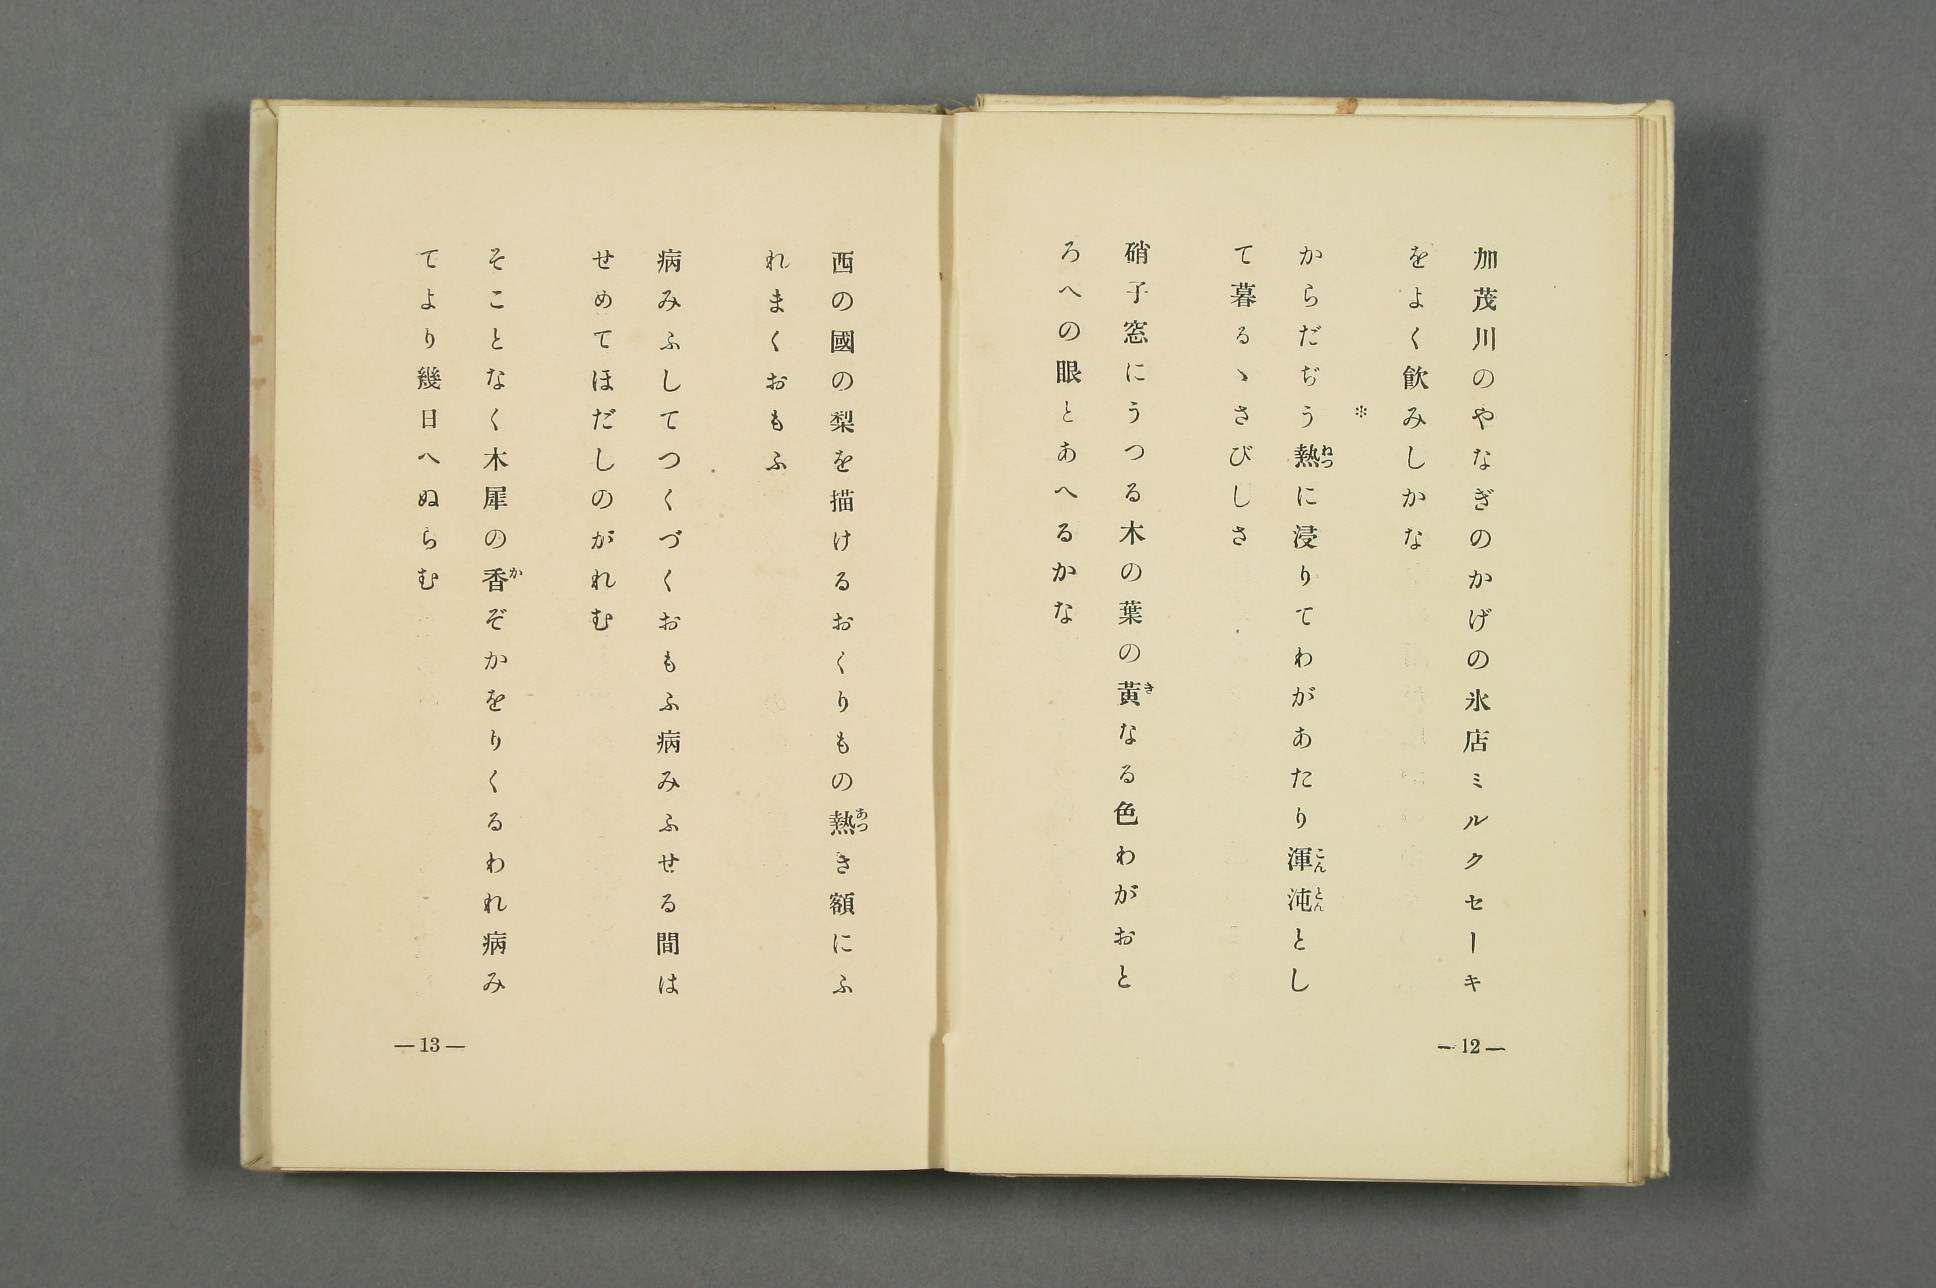 加茂川のやなぎのかげの氷店ミルクセーキ
をよく飮みしかな
＊
からだぢう熱ねつに浸りてわがあたり渾沌こんとんとし
て暮るゝさびしさ
硝子窓にうつる木の葉の黄きなる色わがおと
ろへの眼とあへるかな
—12—
西の國の梨を描けるおくりもの熱あつき額にふ
れまくおもふ
病みふしてつくづくおもふ病みふせる間は
せめてほだしのがれむ
そことなく木犀の香かぞかをりくるわれ病み
てより幾日へぬらむ
—13—